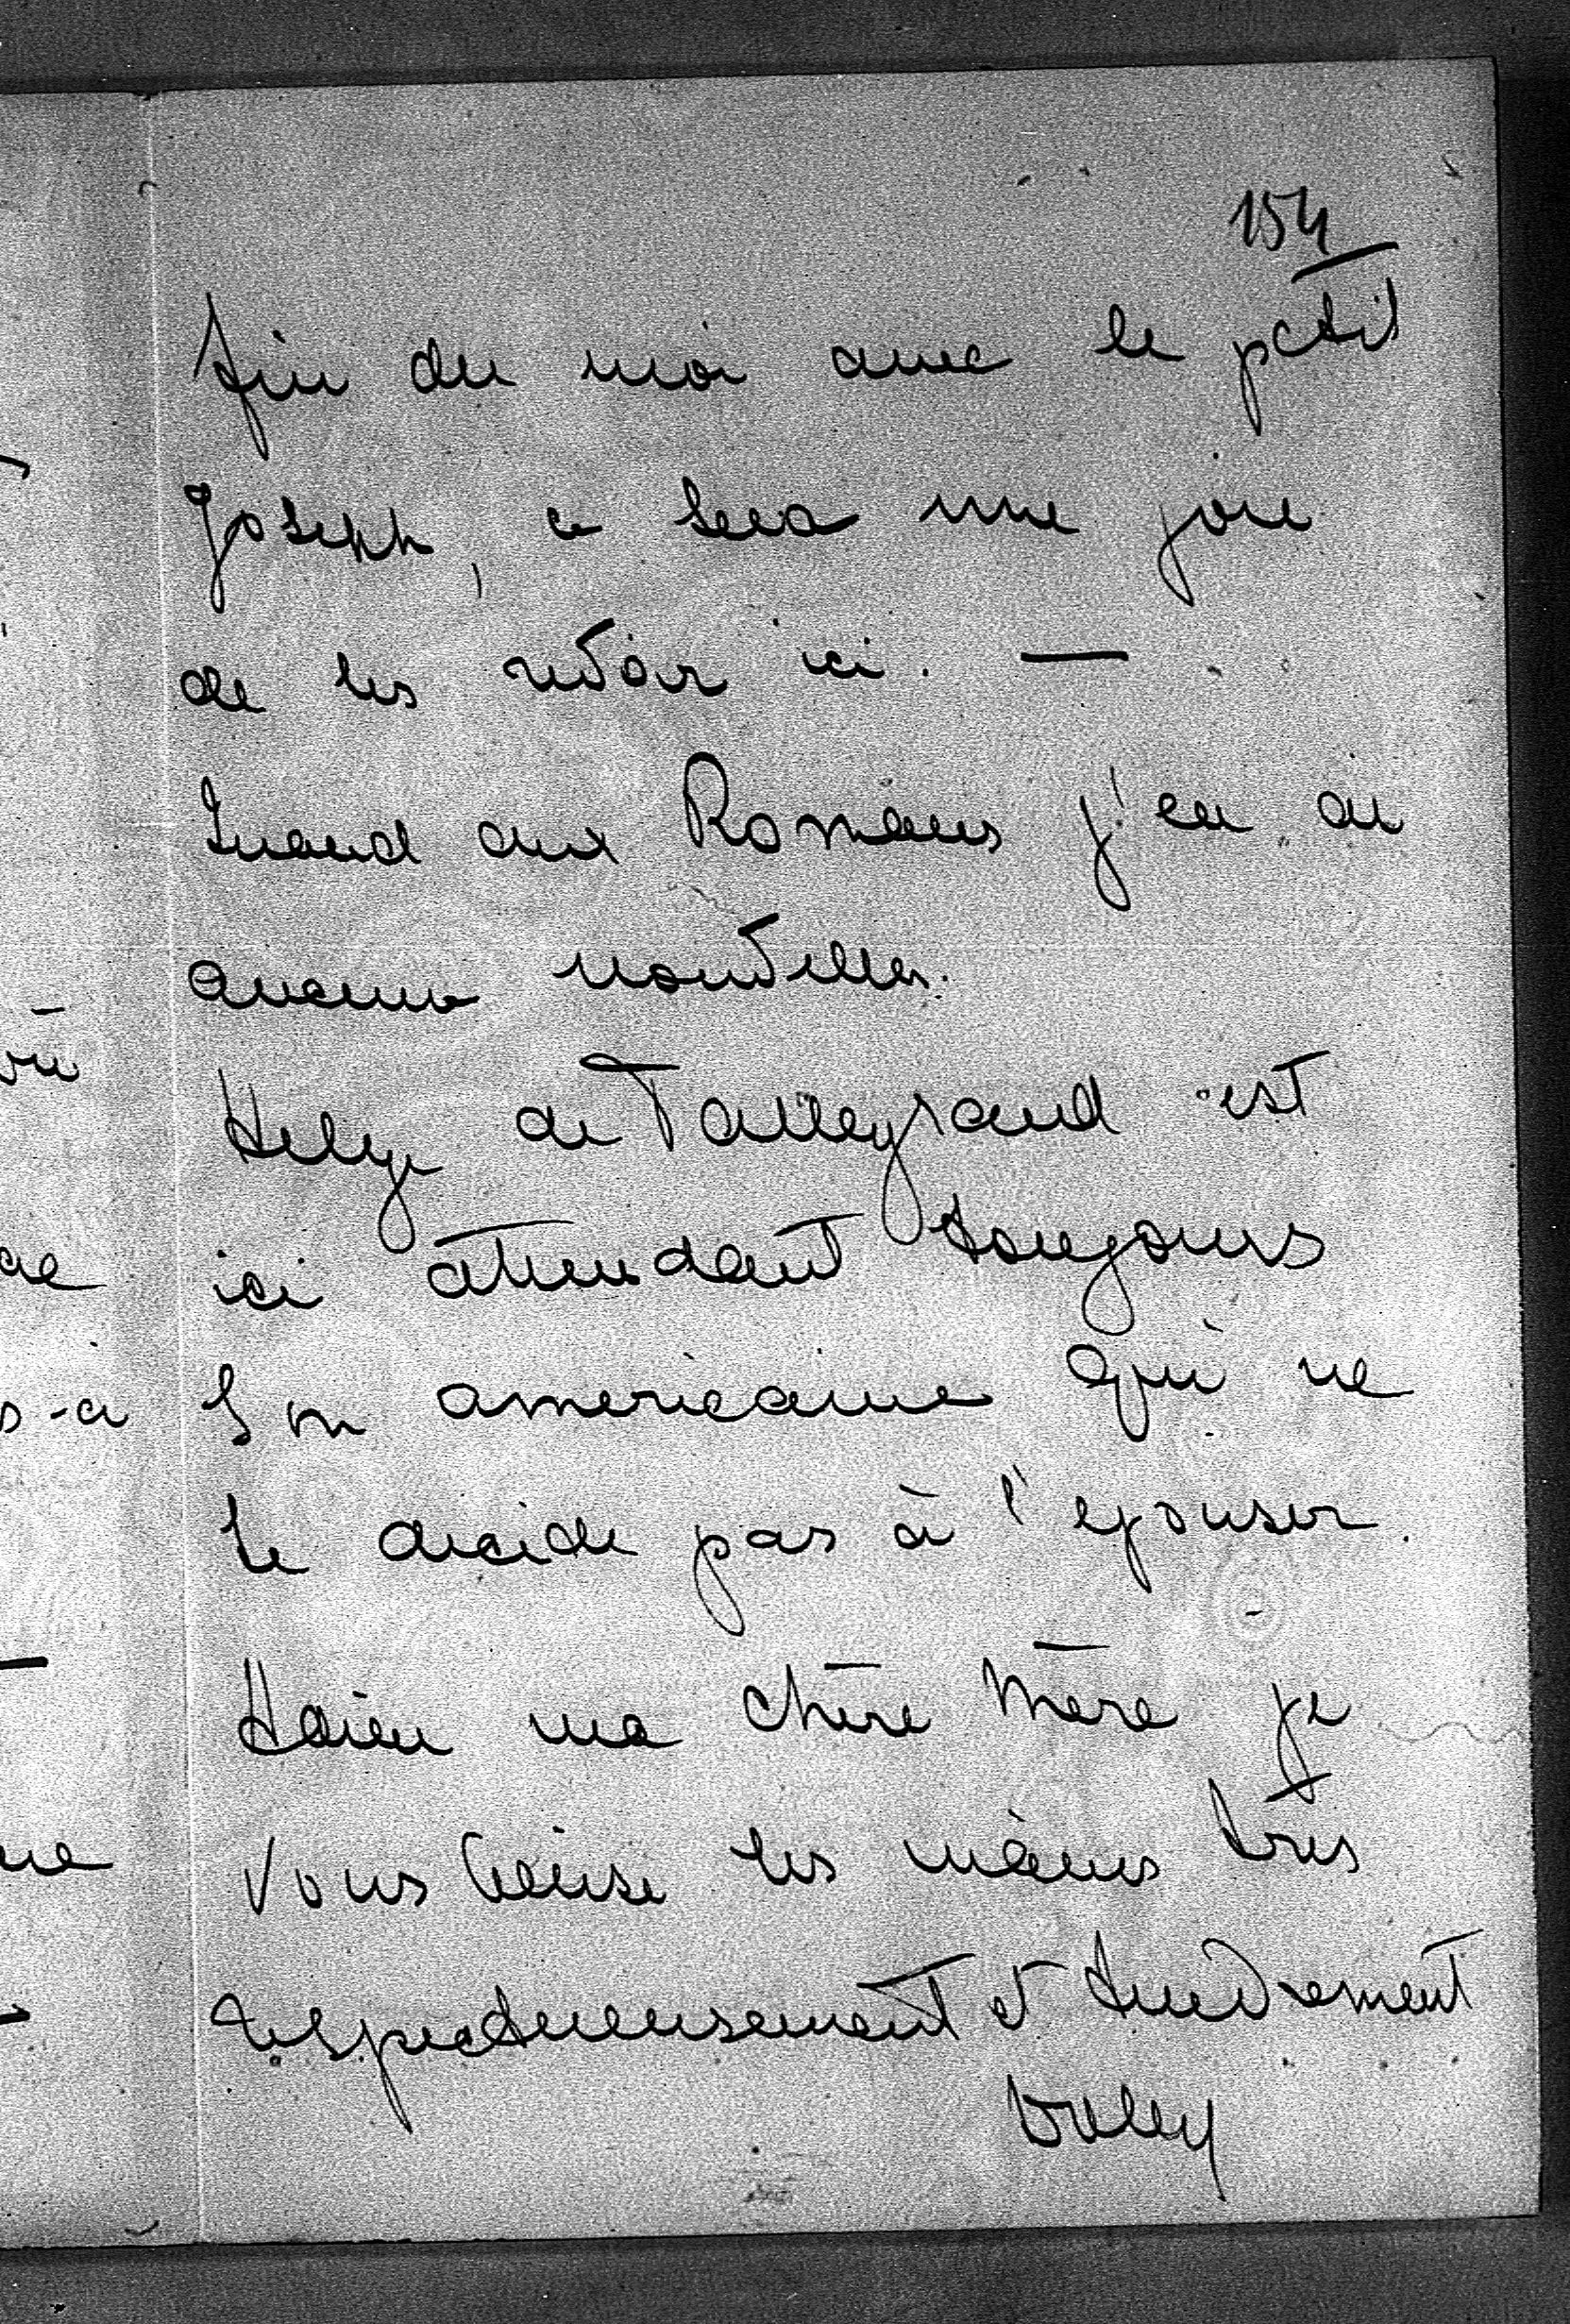 154
fin du moi avec le petit
Joseph, ce sera une joie
de les revoir ici. —
Quand aux Romains j'en ai
aucune nouvelles.
Helye de Talleyrand est
ici attendant toujours
son americaine qui ne
se decide pas à l'epouser.
Adieu ma chère Mère je
vous baise les mains très
respectueusement et tendrement